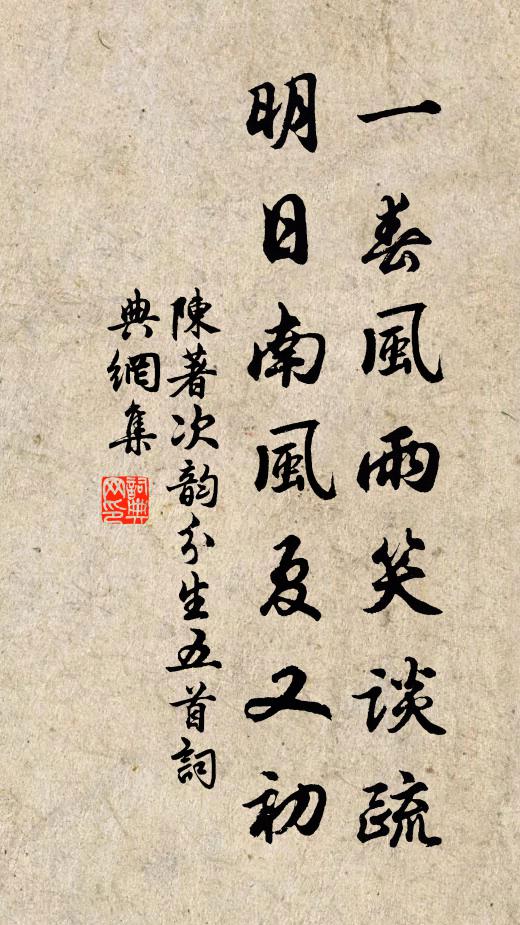 一春風雨笑談疏
明日南風夏又初
陳著次韵分生五首詞
典網集
詞典
网印